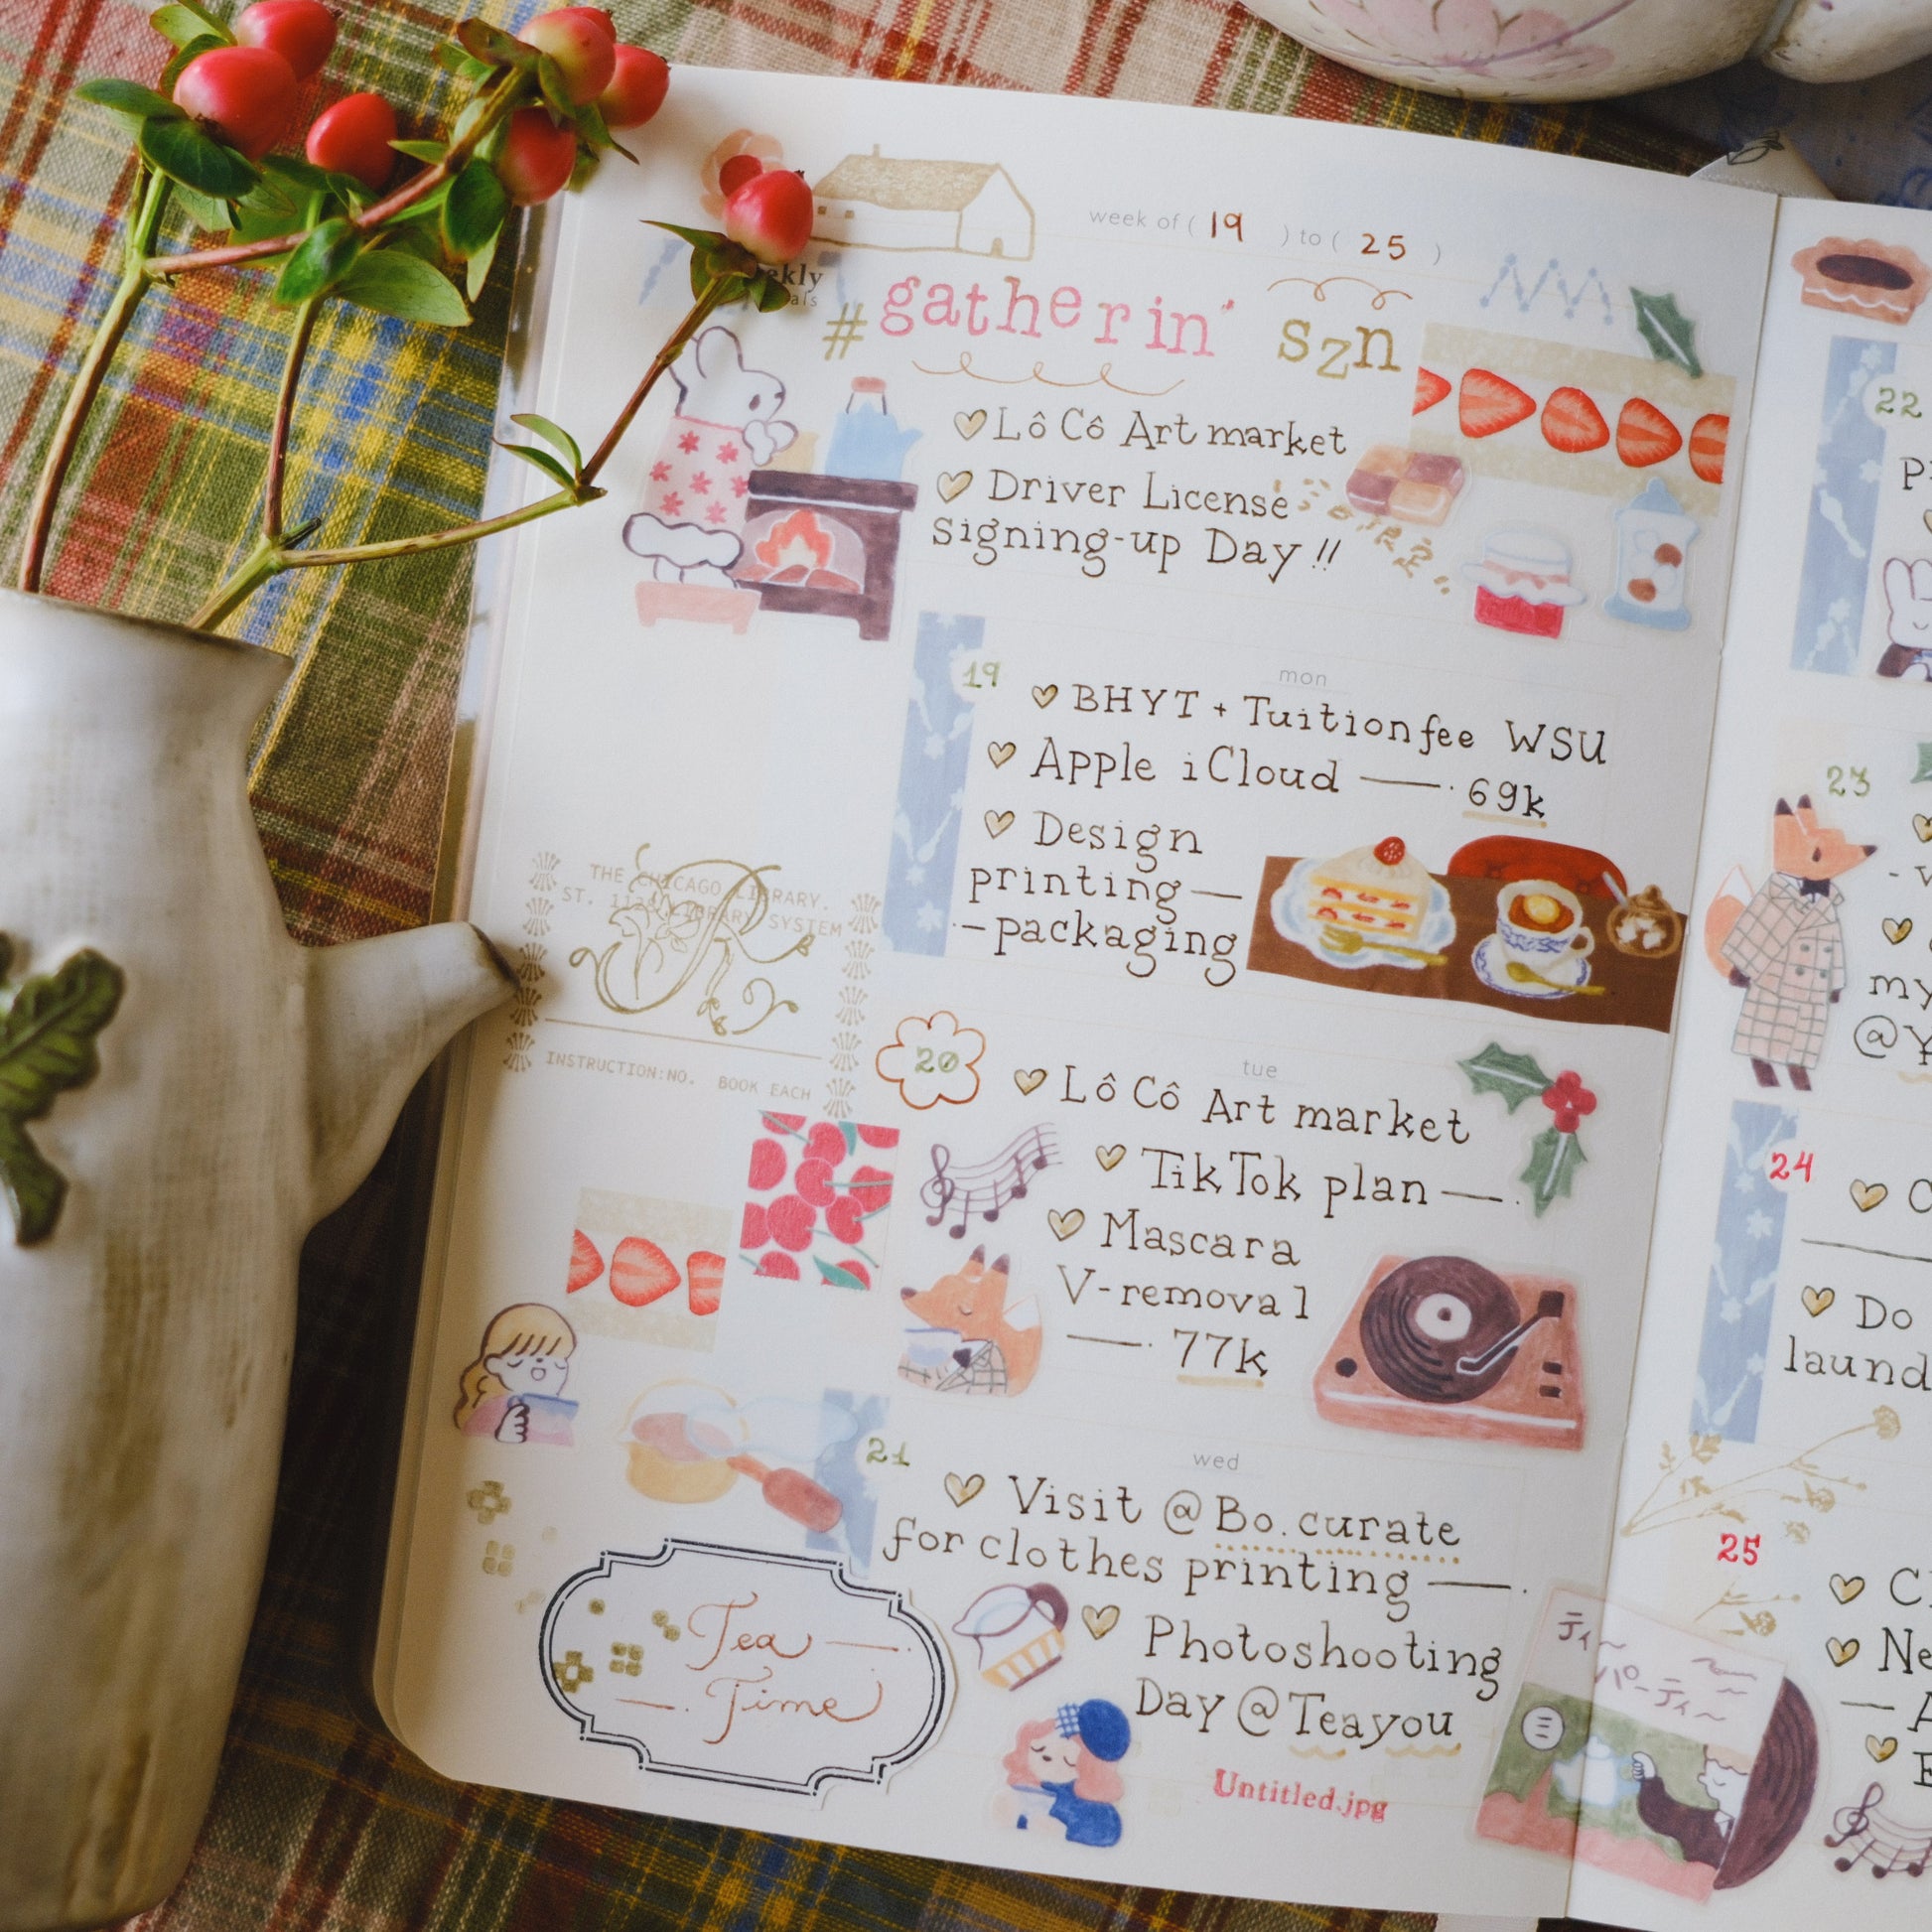 week of ( 19 ) to ( 25 )
#gatherin' szn
♡ Lô Cô Art market
♡ Driver License
signing-up Day !!
19
mon
♡ BHYT + Tuition fee WSU
♡ Apple iCloud —. 69k
♡ Design
printing —
- packaging
THE CHICAGO LIBRARY.
INSTRUCTION:NO. BOOK EACH
20
tue
♡ Lô Cô Art market
♡ TikTok plan —.
♡ Mascara
V-removal
—. 77k
21
wed
♡ Visit @Bo.curate
for clothes printing —.
♡ Photoshooting
Day @Teayou
Untitled.jpg
Tea —.
—. Time
ティ～
パーティ～
22
23
my
24
♡ Do
25